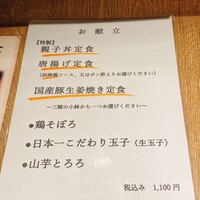 お献立
【特製】
親子丼定食
唐揚げ定食
ソース、又はポン酢よりお選びください）
国産豚生姜焼き定食
～三種の小鉢から一つお選びください～
●鶏そぼろ
●日本一こだわり玉子（生玉子）
●山芋とろろ
税込み 1,100円